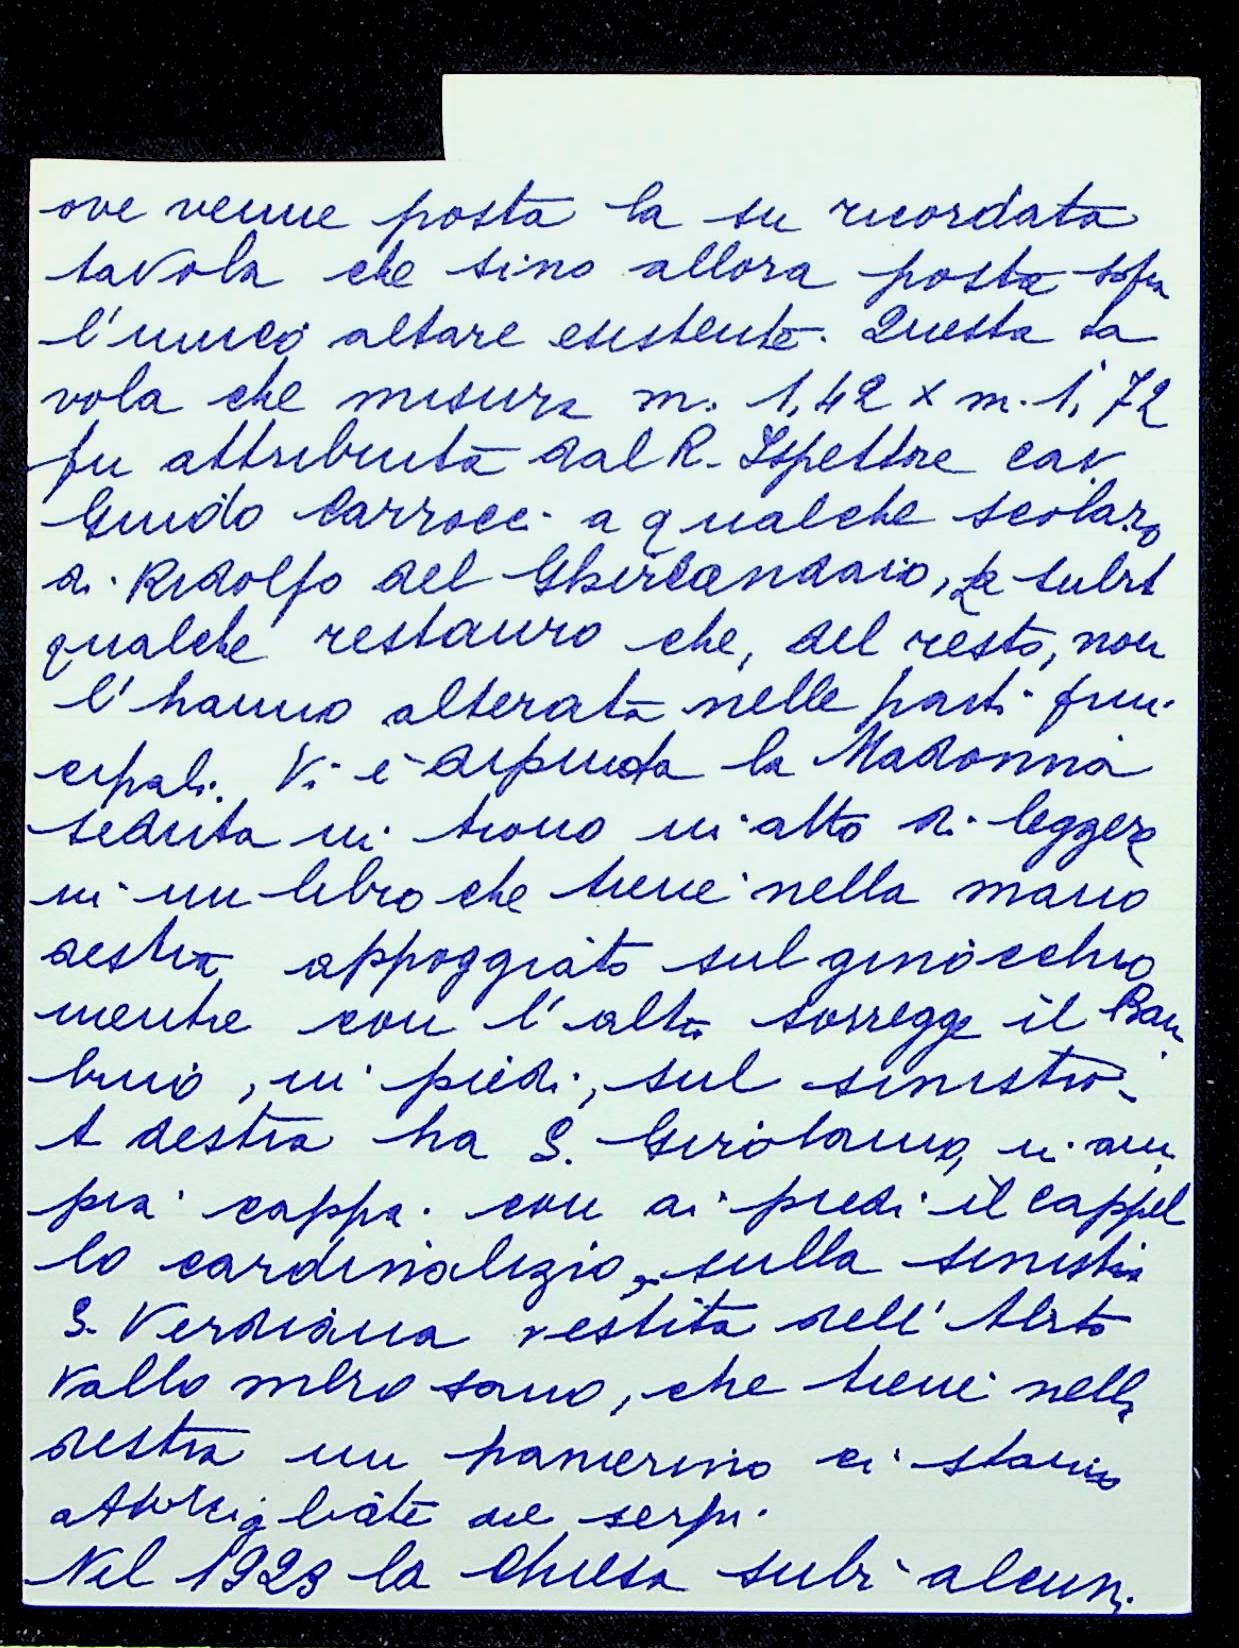 ove venne posta la su ricordata
tavola che sino allora posta sopra
l'unico altare esistente. Questa ta
vola che misura m. 1,42 x m. 1,72
fu attribuita dal R. Ispettore cav
Guido Carrocci a qualche scolaro
di Ridolfo del Ghirlandaio, subì
qualche restauro che, del resto, non
l'hanno alterata nelle parti prin
cipali. Vi è dipinta la Madonna
seduta in trono in atto di leggere
in un libro che tiene nella mano
destra appoggiato sul ginocchio
mentre con l'altra sorregge il Bam
bino, in piedi, sul sinistro.
A destra ha S. Girolamo, in am
pia cappa con ai piedi il cappel
lo cardinalizio, sulla sinistra
S. Verdiana vestita dell'Abito
Vallombrosano, che tiene nella
destra un panierino ci stanno
attorcigliate due serpi.
Nel 1923 la Chiesa subì alcuni